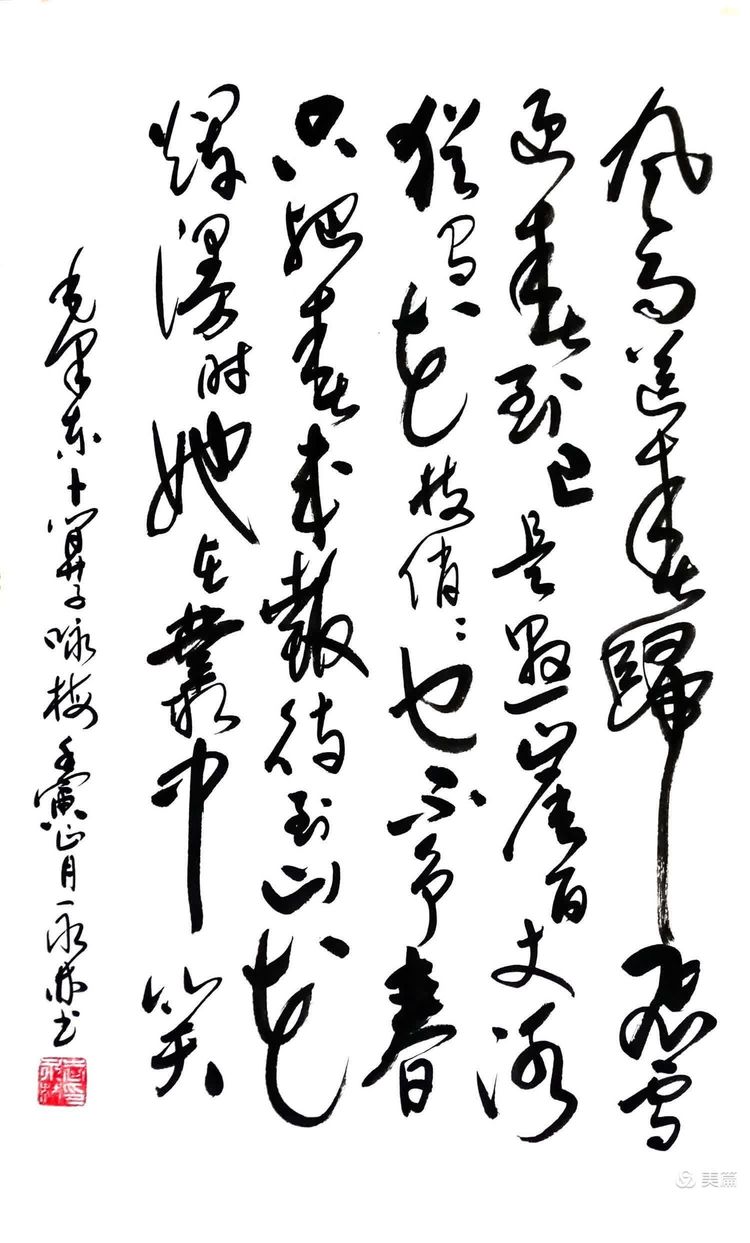 风雨送春歸飛雪
迎春到已是懸崖百丈冰
猶有花枝俏〻也不争春
只把春来報待到山花
爛漫时她在叢中笑
毛泽东卜算子咏梅壬寅正月永书
美篇